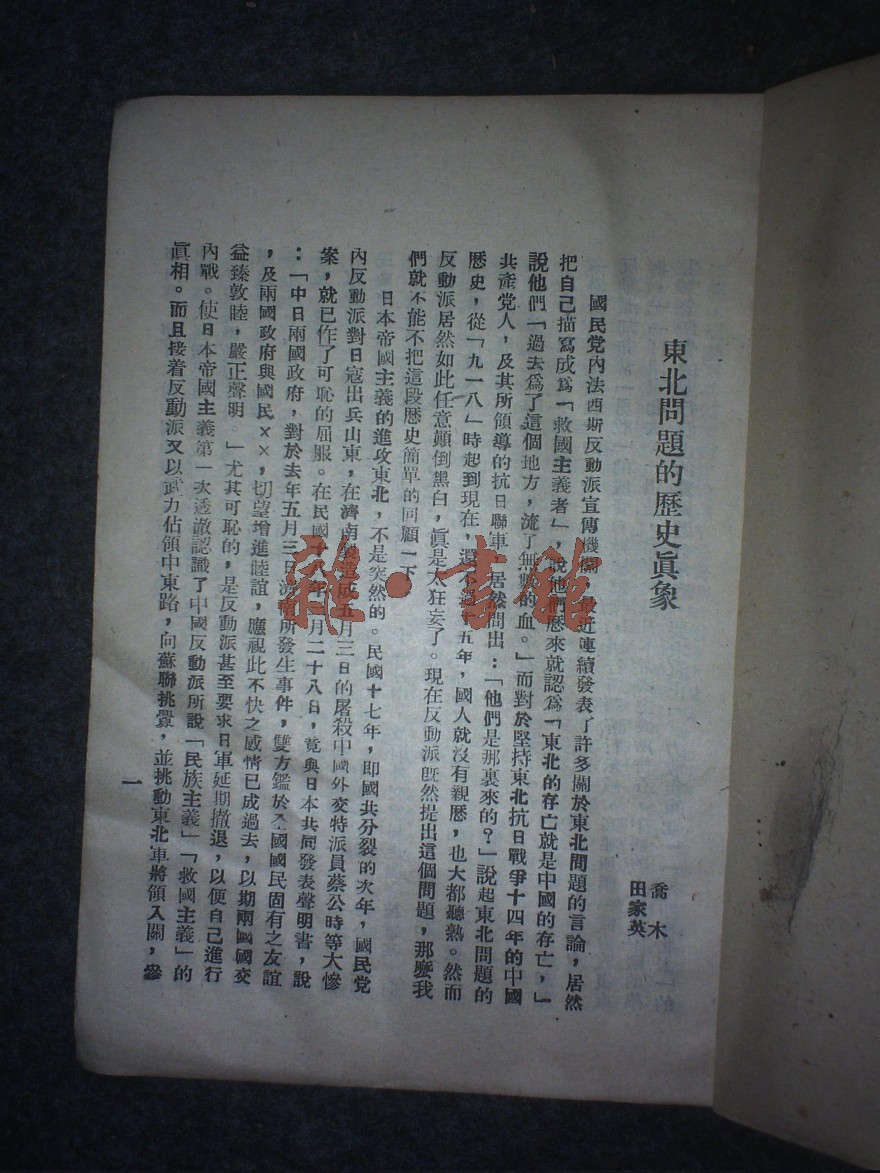 東北問題的歷史眞象
喬木
田家英
國民党內法西斯反動派宣傳機關，最近連續發表了許多關於東北問題的言論，居然
把自己描寫成爲「救國主義者」，說他們歷來就認爲「東北的存亡就是中國的存亡，」
說他們「過去爲了這個地方，流了無數的血。」而對於堅持東北抗日戰爭十四年的中國
共產党人，及其所領導的抗日聯軍，居然問出：「他們是那裏來的？」說起東北問題的
歷史，從「九一八」時起到現在，還不過十五年，國人就沒有親歷，也大都聽熟。然而
反動派居然如此任意顚倒黑白，眞是太狂妄了。現在反動派既然提出這個問題，那麼我
們就不能不把這段歷史簡單的回顧一下
日本帝國主義的進攻東北，不是突然的。民國十七年，即國共分裂的次年，國民党
內反動派對日寇出兵山東，在濟南製造成五月三日的屠殺中國外交特派員蔡公時等大慘
案，就已作了可恥的屈服。在民國十八年三月二十八日，竟與日本共同發表聲明書，說
：「中日兩國政府，對於去年五月三日濟南所發生事件，雙方鑑於 國國民固有之友誼
，及兩國政府與國民××，切望增進睦誼，應視此不快之感情已成過去，以期兩國國交
益臻敦睦，嚴正聲明。」尤其可恥的，是反動派甚至要求日軍延期撤退，以便自己進行
內戰。使日本帝國主義第一次透澈認識了中國反動派所說「民族主義」「救國主義」的
眞相。而且接着反動派又以武力佔領中東路，向蘇聯挑釁，並挑動東北軍將領入關，參
一
雜·書館